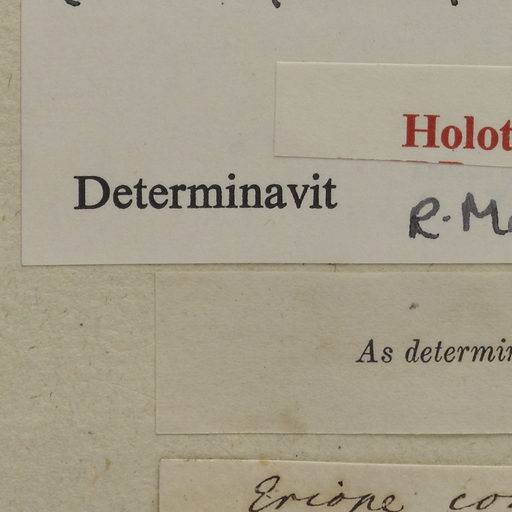 Holot
Determinavit R. Ma
As determin
Eriope co